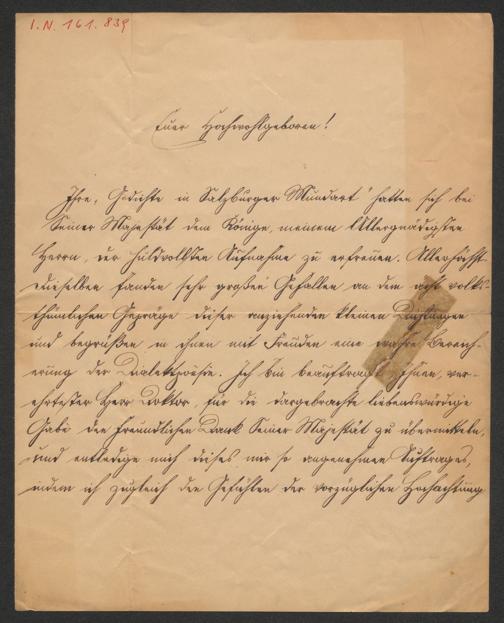 I.N. 161.839
Euer Hochwohlgeboren!
Ihre „Gedichte in Salzburger Mundart" hatten sich bei
Seiner Majestät dem Könige, meinem Allergnädigsten
Herrn, der huldvollsten Aufnahme zu erfreuen. Allerhöchst-
dieselben fanden sehr großen Gefallen an dem ächt volks-
thümlichen Gepräge dieser anziehenden kleinen Dichtungen
und begrüßen in ihnen mit Freuden eine wahre Bereich-
erung der Dialektpoësie. Ich bin beauftragt, Ihnen, ver-
ehrtester Herr Doktor, für die dargebrachte liebenswürdige
Gabe den freundlichen Dank Seiner Majestät zu übermitteln,
und entledige mich dieses mir so angenehmen Auftrages,
indem ich zugleich den Gefühlen der vorzüglichen Hochachtung